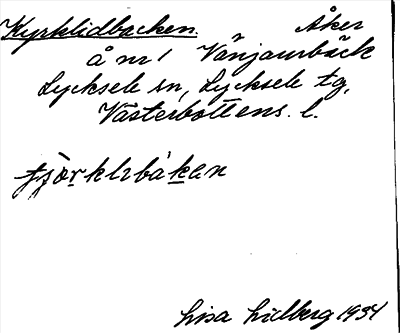 Kyrklidbacken. Åker
å nr 1 Vänjaurbäck
Lycksele sn, Lycksele tg,
Västerbottens. l.
fjörklibakan
Lisa Lidberg 1934